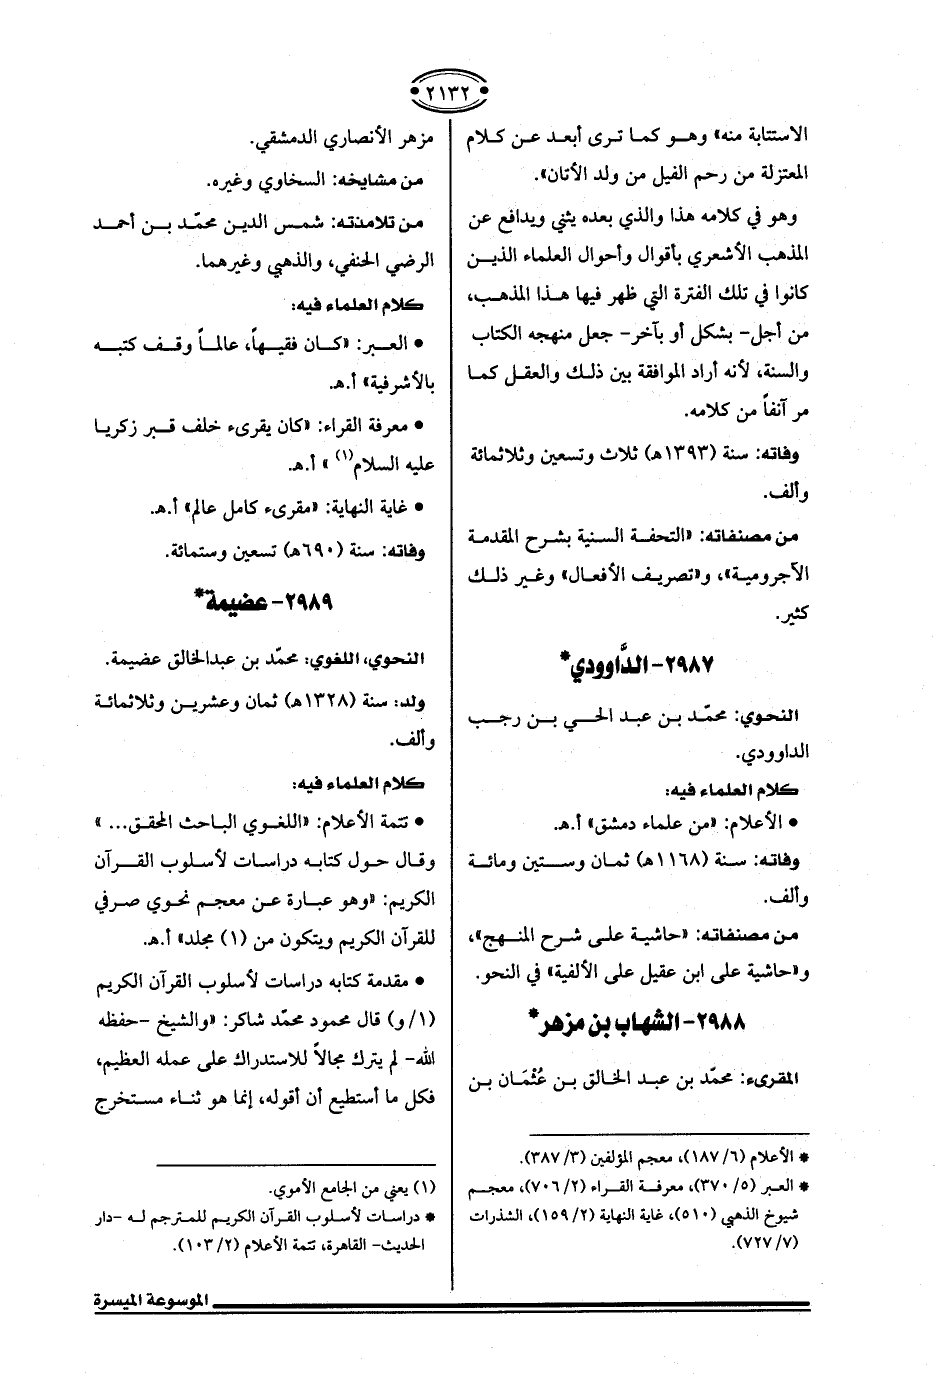 ٢١٣٢
الاستتابة منه» وهو كما ترى أبعد عن كلام
المعتزلة من رحم الفيل من ولد الأتان».
وهو في كلامه هذا والذي بعده يثني ويدافع عن
المذهب الأشعري بأقوال وأحوال العلماء الذين
كانوا في تلك الفترة التي ظهر فيها هذا المذهب،
من أجل- بشكل أو بآخر- جعل منهجه الكتاب
والسنة، لأنه أراد الموافقة بين ذلك والعقل كما
مر آنفاً من كلامه.
وفاته: سنة (١٣٩٣هـ) ثلاث وتسعين وثلاثمائة
وألف.
من مصنفاته: «التحفة السنية بشرح المقدمة
الآجرومية»، و«تصريف الأفعال» وغير ذلك
كثير.
٢٩٨٧- الدَّاوودي*
النحوي: محمّد بن عبد الحي بن رجب
الداوودي.
كلام العلماء فيه:
• الأعلام: «من علماء دمشق» أ.هـ.
وفاته: سنة (١١٦٨هـ) ثمان وستين ومائة
وألف.
من مصنفاته: «حاشية على شرح المنهج»،
و«حاشية على ابن عقيل على الألفية» في النحو.
٢٩٨٨- الشهاب بن مزهر*
المقرىء: محمّد بن عبد الخالق بن عُثْمَان بن
* الأعلام (٦/ ١٨٧)، معجم المؤلفين (٣/ ٣٨٧).
* العبر (٥/ ٣٧٠)، معرفة القراء (٢/ ٧٠٦)، معجم
شيوخ الذهبي (٥١٠)، غاية النهاية (٢/ ١٥٩)، الشذرات
(٧/ ٧٢٧).
مزهر الأنصاري الدمشقي.
من مشايخه: السخاوي وغيره.
من تلامذته: شمس الدين محمّد بن أحمد
الرضي الحنفي، والذهبي وغيرهما.
كلام العلماء فيه:
• العبر: «كان فقيهاً، عالماً وقف كتبه
بالأشرفية» أ.هـ.
• معرفة القراء: «كان يقرىء خلف قبر زكريا
عليه السلام(١)» أ.هـ.
• غاية النهاية: «مقرىء كامل عالم» أ.هـ.
وفاته: سنة (٦٩٠هـ) تسعين وستمائة.
٢٩٨٩- عضيمة*
النحوي، اللغوي: محمّد بن عبدالخالق عضيمة.
ولد: سنة (١٣٢٨هـ) ثمان وعشرين وثلاثمائة
وألف.
كلام العلماء فيه:
• تتمة الأعلام: «اللغوي الباحث المحقق... »
وقال حول كتابه دراسات لأسلوب القرآن
الكريم: «وهو عبارة عن معجم نحوي صرفي
للقرآن الكريم ويتكون من (١) مجلد» أ.هـ.
• مقدمة كتابه دراسات لأسلوب القرآن الكريم
(١/ و) قال محمود محمّد شاكر: «والشيخ -حفظه
الله- لم يترك مجالاً للاستدراك على عمله العظيم،
فكل ما أستطيع أن أقوله، إنما هو ثناء مستخرج
(١) يعني من الجامع الأموي.
* دراسات لأسلوب القرآن الكريم للمترجم له -دار
الحديث- القاهرة، تتمة الأعلام (٢/ ١٠٣).
الموسوعة الميسرة